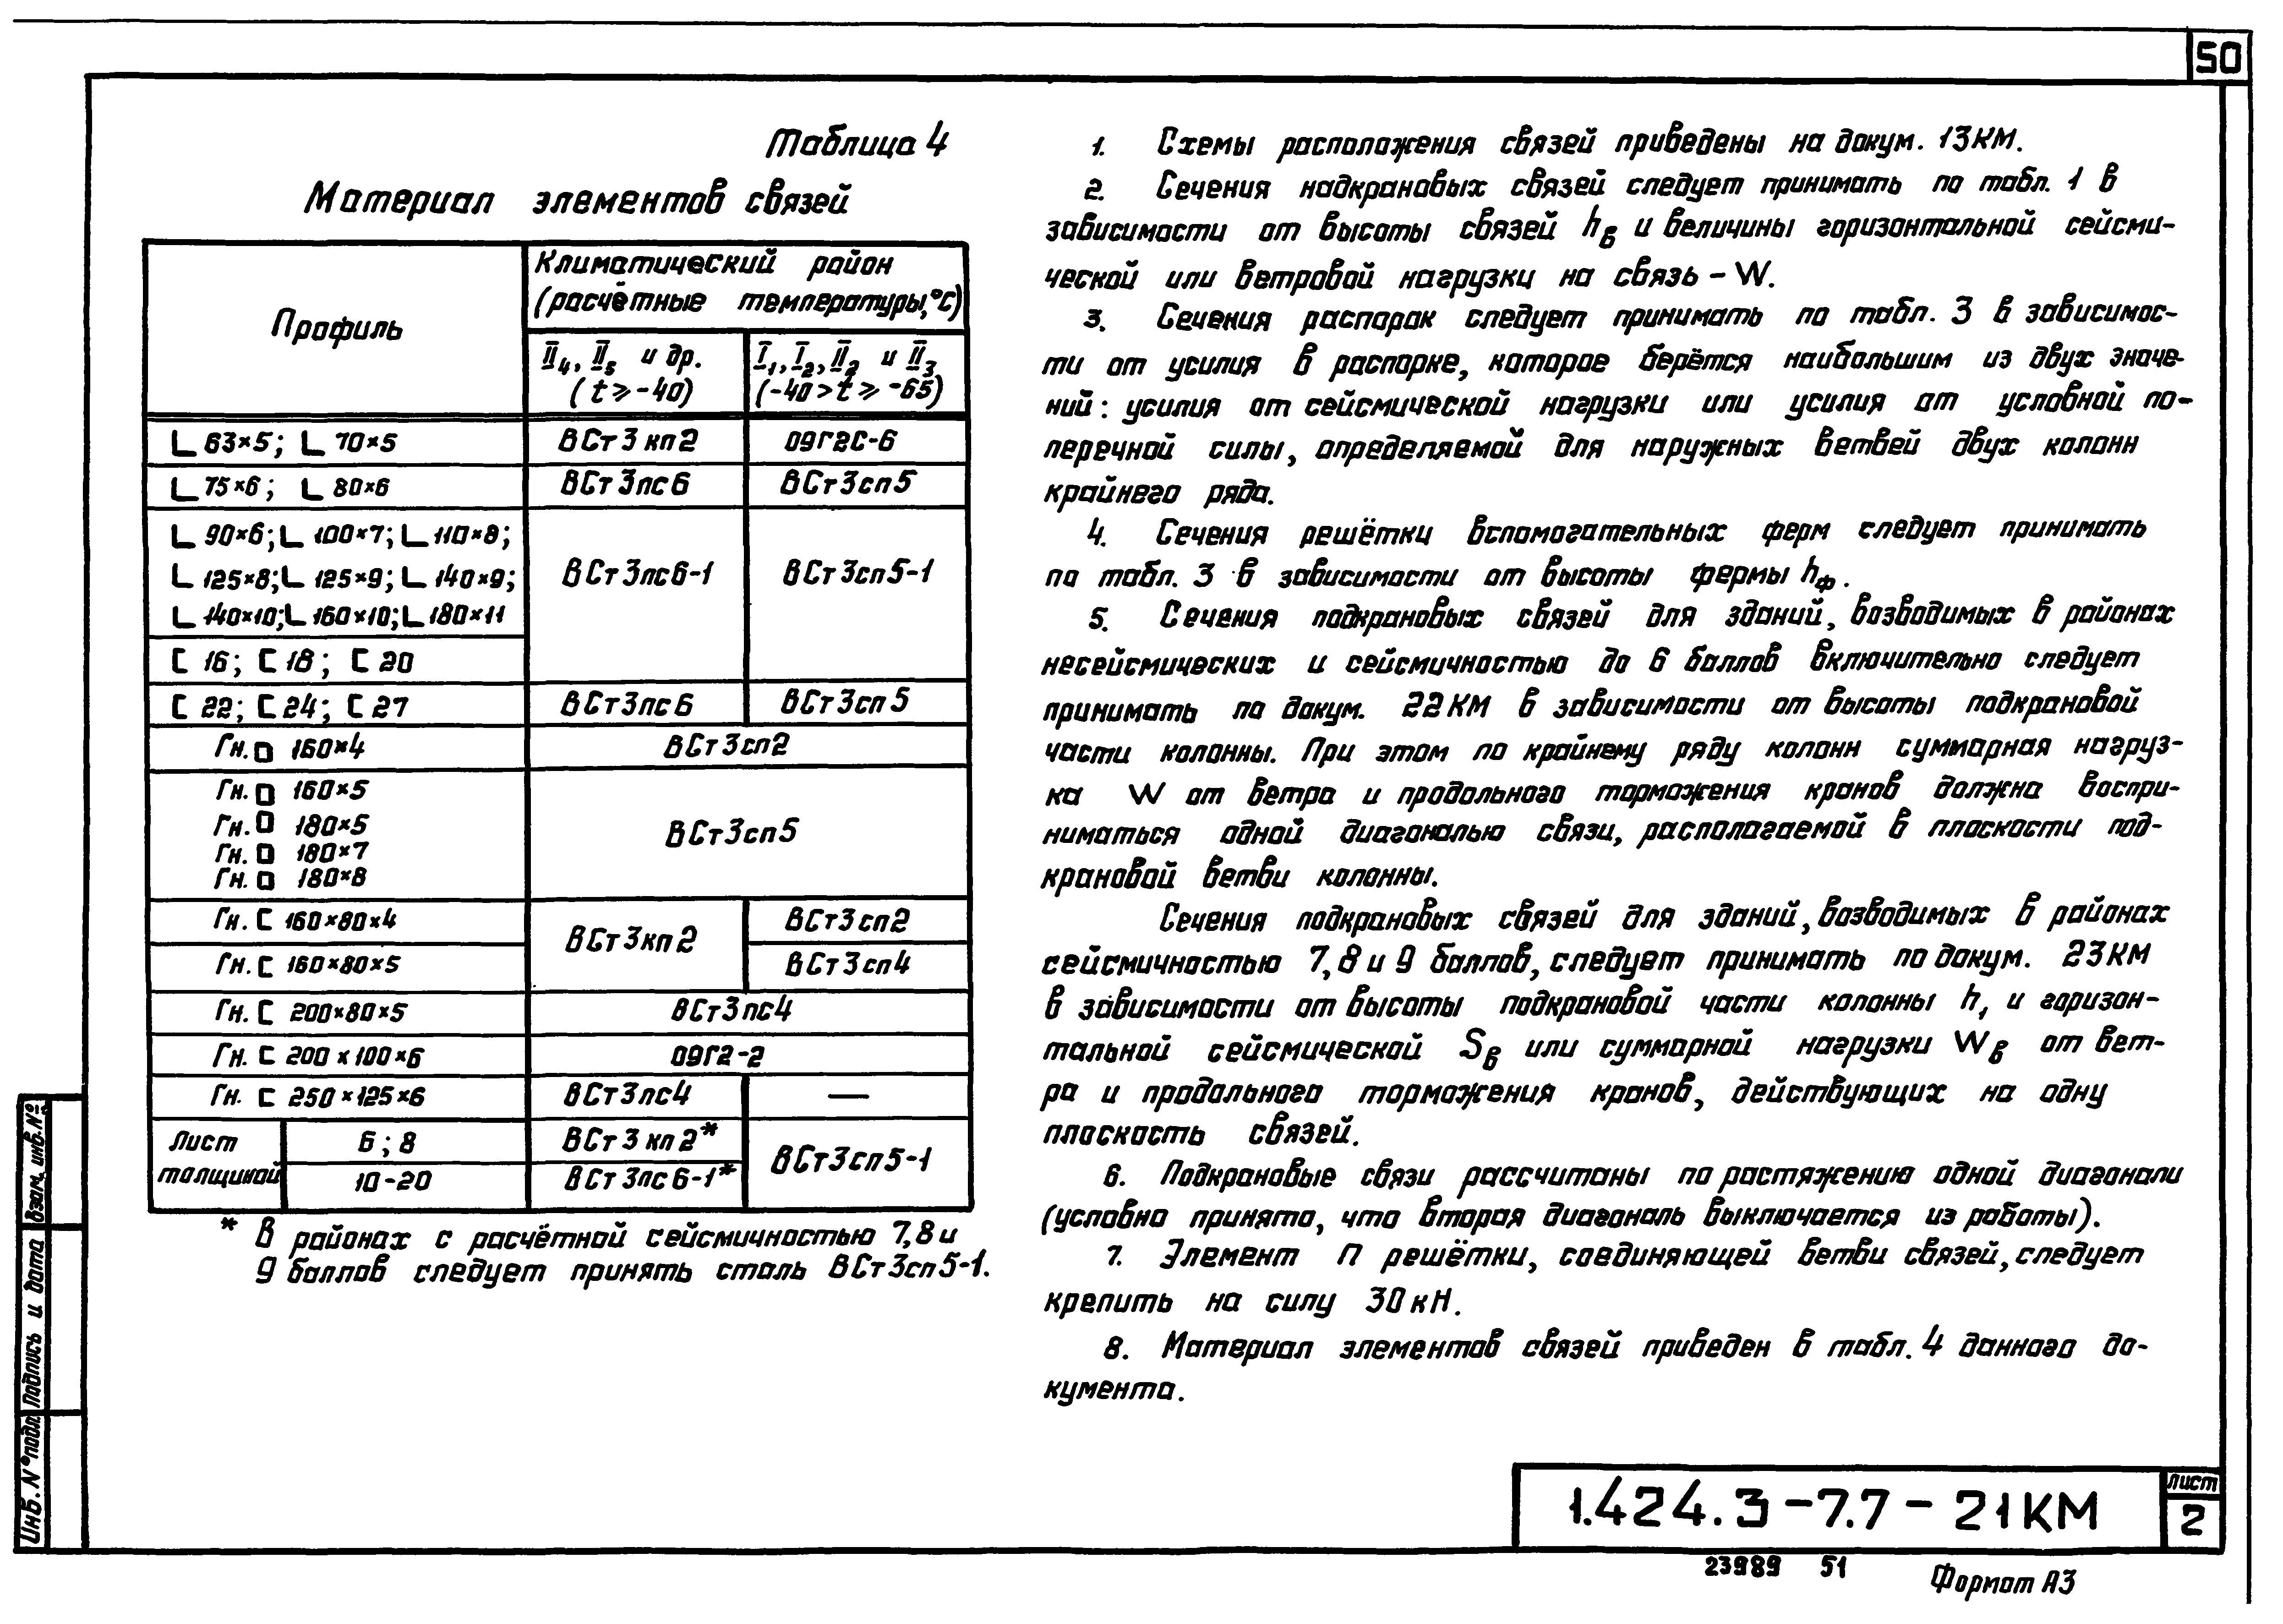 50
Таблица 4
Материал элементов связей
Профиль
Климатический район
(расчётные температуры,°С)
II₄, II₅ и др.
(t ⩾ -40)
I₁, I₂, II₂ и II₃
(-40 > t ⩾ -65)
L 63×5; L 70×5
ВСт3кп2
09Г2С-6
L 75×6; L 80×6
ВСт3пс6
ВСт3сп5
L 90×6; L 100×7; L 110×8;
L 125×8; L 125×9; L 140×9;
L 140×10; L 160×10; L 180×11
ВСт3пс6-1
ВСт3сп5-1
[ 16; [ 18; [ 20
[ 22; [ 24; [ 27
ВСт3пс6
ВСт3сп5
Гн. □ 160×4
ВСт3сп2
Гн. □ 160×5
Гн. □ 180×5
Гн. □ 180×7
Гн. □ 180×8
ВСт3сп5
Гн. [ 160×80×4
ВСт3кп2
ВСт3сп2
Гн. [ 160×80×5
ВСт3сп4
Гн. [ 200×80×5
ВСт3пс4
Гн. [ 200×100×6
09Г2-2
Гн. [ 250×125×6
ВСт3пс4
—
Лист
толщиной
6; 8
ВСт3кп2*
10-20
ВСт3пс6-1*
ВСт3сп5-1
* В районах с расчётной сейсмичностью 7,8 и
9 баллов следует принять сталь ВСт3сп5-1.
1. Схемы расположения связей приведены на докум. 13КМ.
2. Сечения надкрановых связей следует принимать по табл. 1 в
зависимости от высоты связей hв и величины горизонтальной сейсми-
ческой или ветровой нагрузки на связь - W.
3. Сечения распорок следует принимать по табл. 3 в зависимос-
ти от усилия в распорке, которое берётся наибольшим из двух значе-
ний: усилия от сейсмической нагрузки или усилия от условной по-
перечной силы, определяемой для наружных ветвей двух колонн
крайнего ряда.
4. Сечения решётки вспомогательных ферм следует принимать
по табл. 3 в зависимости от высоты фермы hф.
5. Сечения подкрановых связей для зданий, возводимых в районах
несейсмических и сейсмичностью до 6 баллов включительно следует
принимать по докум. 22КМ в зависимости от высоты подкрановой
части колонны. При этом по крайнему ряду колонн суммарная нагруз-
ка W от ветра и продольного торможения кранов должна воспри-
ниматься одной диагональю связи, располагаемой в плоскости под-
крановой ветви колонны.
Сечения подкрановых связей для зданий, возводимых в районах
сейсмичностью 7,8 и 9 баллов, следует принимать по докум. 23КМ
в зависимости от высоты подкрановой части колонны h₁ и горизон-
тальной сейсмической Sв или суммарной нагрузки Wв от вет-
ра и продольного торможения кранов, действующих на одну
плоскость связей.
6. Подкрановые связи рассчитаны по растяжению одной диагонали
(условно принято, что вторая диагональ выключается из работы).
7. Элемент П решётки, соединяющей ветви связей, следует
крепить на силу 30кН.
8. Материал элементов связей приведен в табл. 4 данного до-
кумента.
Взам. инв.№
Подпись и дата
Инв. № подл
1.424.3-7.7-21КМ
Лист
2
23989 51
Формат А3